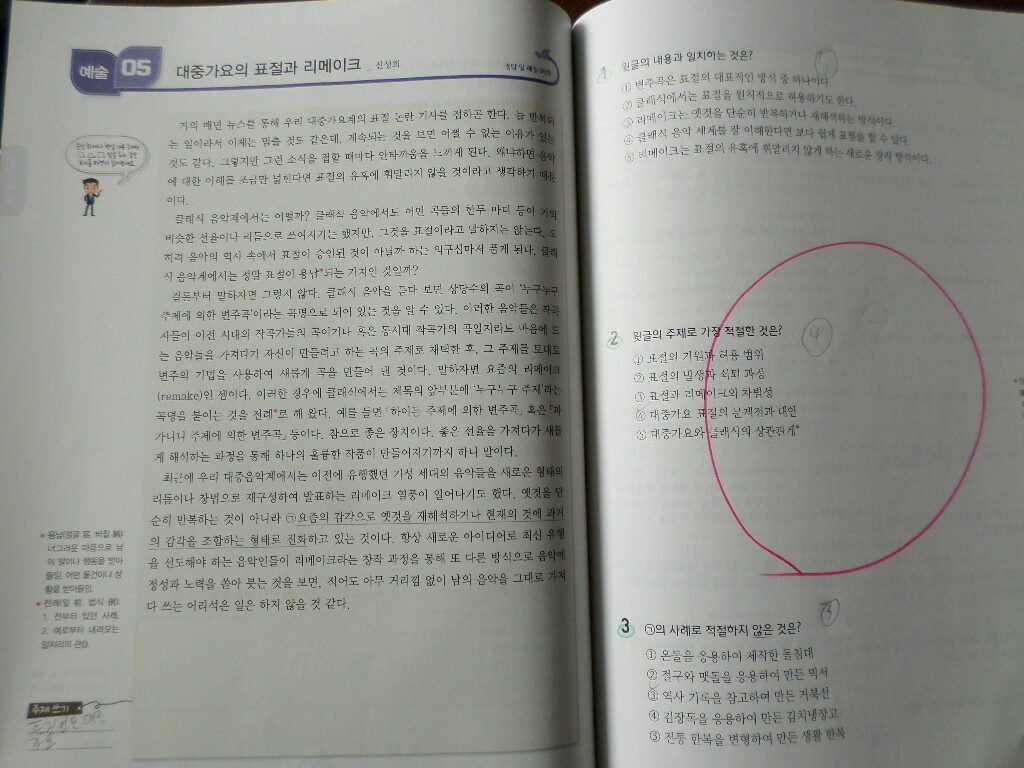 예술 05
대중가요의 표절과 리메이크 _ 신상희
정답 및 해설
거의 매년 뉴스를 통해 우리 대중가요계의 표절 논란 기사를 접하곤 한다. 늘 반복되
는 일이라서 이제는 멈출 것도 같은데, 계속되는 것을 보면 어쩔 수 없는 이유가 있는
것도 같다. 그렇지만 그런 소식을 접할 때마다 안타까움을 느끼게 된다. 왜냐하면 음악
에 대한 이해를 조금만 넓힌다면 표절의 유혹에 휘말리지 않을 것이라고 생각하기 때문
이다.
클래식 음악계에서는 어떨까? 클래식 음악에서도 어떤 곡들의 한두 마디 등이 거의
비슷한 선율이나 리듬으로 쓰여지기는 했지만, 그것을 표절이라고 말하지는 않는다. 오
히려 음악의 역사 속에서 표절이 승인된 것이 아닐까 하는 의구심마저 품게 된다. 클래
식 음악계에서는 정말 표절이 용납*되는 가치인 것일까?
결론부터 말하자면 그렇지 않다. 클래식 음악을 듣다 보면 상당수의 곡이 '누구누구
주제에 의한 변주곡'이라는 곡명으로 되어 있는 것을 알 수 있다. 이러한 음악들은 작곡
자들이 이전 시대의 작곡가들의 곡이거나 혹은 동시대 작곡가의 곡일지라도 마음에 드
는 음악들을 가져다가 자신이 만들려고 하는 곡의 주제로 채택한 후, 그 주제를 토대로
변주의 기법을 사용하여 새롭게 곡을 만들어 낸 것이다. 말하자면 요즘의 리메이크
(remake)인 셈이다. 이러한 경우에 클래식에서는 제목의 앞부분에 '누구누구 주제'라는
곡명을 붙이는 것을 전례*로 해 왔다. 예를 들면 「하이든 주제에 의한 변주곡」 혹은 「파
가니니 주제에 의한 변주곡」 등이다. 참으로 좋은 장치이다. 좋은 선율을 가져다가 새롭
게 해석하는 과정을 통해 하나의 훌륭한 작품이 만들어지기까지 하니 말이다.
최근에 우리 대중음악계에서는 이전에 유행했던 기성 세대의 음악들을 새로운 형태의
리듬이나 창법으로 재구성하여 발표하는 리메이크 열풍이 일어나기도 했다. 옛것을 단
순히 반복하는 것이 아니라 ㉠요즘의 감각으로 옛것을 재해석하거나 현재의 것에 과거
의 감각을 조합하는 형태로 진화하고 있는 것이다. 항상 새로운 아이디어로 최신 유행
을 선도해야 하는 음악인들이 리메이크라는 창작 과정을 통해 또 다른 방식으로 음악에
정성과 노력을 쏟아 붓는 것을 보면, 적어도 아무 거리낌 없이 남의 음악을 그대로 가져
다 쓰는 어리석은 일은 하지 않을 것 같다.
* 용납(얼굴 容, 바칠 納):
너그러운 마음으로 남
의 말이나 행동을 받아
들임. 어떤 물건이나 상
황을 받아들임.
* 전례(앞 前, 법식 例):
1. 전부터 있던 사례.
2. 예로부터 내려오는
일처리의 관습.
주제 쓰기
1 윗글의 내용과 일치하는 것은? ⑤
① 변주곡은 표절의 대표적인 방식 중 하나이다.
② 클래식에서는 표절을 원칙적으로 허용하기도 한다.
③ 리메이크는 옛것을 단순히 반복하거나 재해석하는 방식이다.
④ 클래식 음악 세계를 잘 이해한다면 보다 쉽게 표절을 할 수 있다.
⑤ 리메이크는 표절의 유혹에 휘말리지 않게 하는 새로운 창작 방식이다.
2 윗글의 주제로 가장 적절한 것은? ④
① 표절의 기원과 허용 범위
② 표절의 발생과 쇠퇴 과정
③ 표절과 리메이크의 차별성
④ 대중가요 표절의 문제점과 대안
⑤ 대중가요와 클래식의 상관관계*
3 ㉠의 사례로 적절하지 않은 것은? ③
① 온돌을 응용하여 제작한 돌침대
② 절구와 맷돌을 응용하여 만든 믹서
③ 역사 기록을 참고하여 만든 거북선
④ 김장독을 응용하여 만든 김치냉장고
⑤ 전통 한복을 변형하여 만든 생활 한복